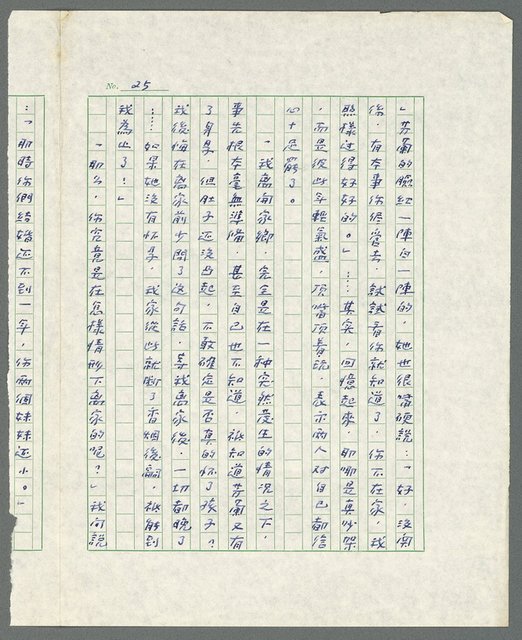 No. 25
」芬蘭的臉紅一陣白一陣的，她也很嘴硬說：「好，沒關
係，有本事你儘管去，試試看你就知道了，你不在家，我
照樣過得好好的。」……其實，回憶起來，那哪是真吵架
，而是從此年輕氣盛，頂嘴頂著說，表示兩人对自己都信
心十足罷了。
「我离開家鄉，完全是在一种突然發生的情况之下，
事先根本毫無準備，甚至自己也不知道，祇知道芬蘭又有
了身孕，但肚子还沒凸起，不敢確定是否真的怀了孩子？
我後悔在离家前少問了这句話，等我离家後，一切都晚了
……如果她沒有怀孕，我家從此就斷了香烟後嗣，祇能到
我為止了！」
「那么，你究竟是在怎樣情形下离家的呢？」我问說
：「那時你們结婚还不到一年，你兩個妹妹还小。」